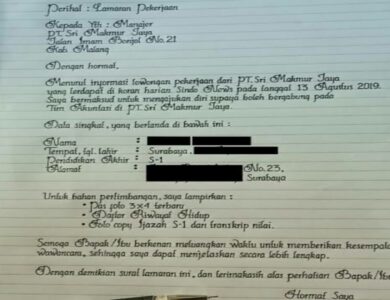 Perihal : Lamaran Pekerjaan
Kepada Yth : Manajer
PT. Sri Makmur Jaya
Jalan Imam Bonjol No. 21
Kab Malang
Dengan hormat,
Menurut informasi lowongan pekerjaan dari PT. Sri Makmur Jaya
yang terdapat di koran harian Sindo News pada tanggal 13 Agustus 2019.
Saya bermaksud untuk mengajukan diri supaya boleh bergabung pada
Tim Akuntasi di PT. Sri Makmur Jaya.
Data singkat, yang bertanda di bawah ini :
Nama :
Tempat, tgl. lahir : Surabaya,
Pendidikan Akhir : S-1
Alamat : No. 23,
Surabaya
Untuk bahan pertimbangan, saya lampirkan :
• Pas foto 3x4 terbaru
• Daftar Riwayat Hidup
• Foto copy Ijazah S-1 dan transkrip nilai.
Semoga Bapak/Ibu berkenan meluangkan waktu untuk memberikan kesempa
wawancara, sehingga saya dapat menjelaskan secara lebih lengkap.
Dengan demikian surat lamaran ini, dan terimakasih atas perhatian Bapak/Ib
Hormat Saya